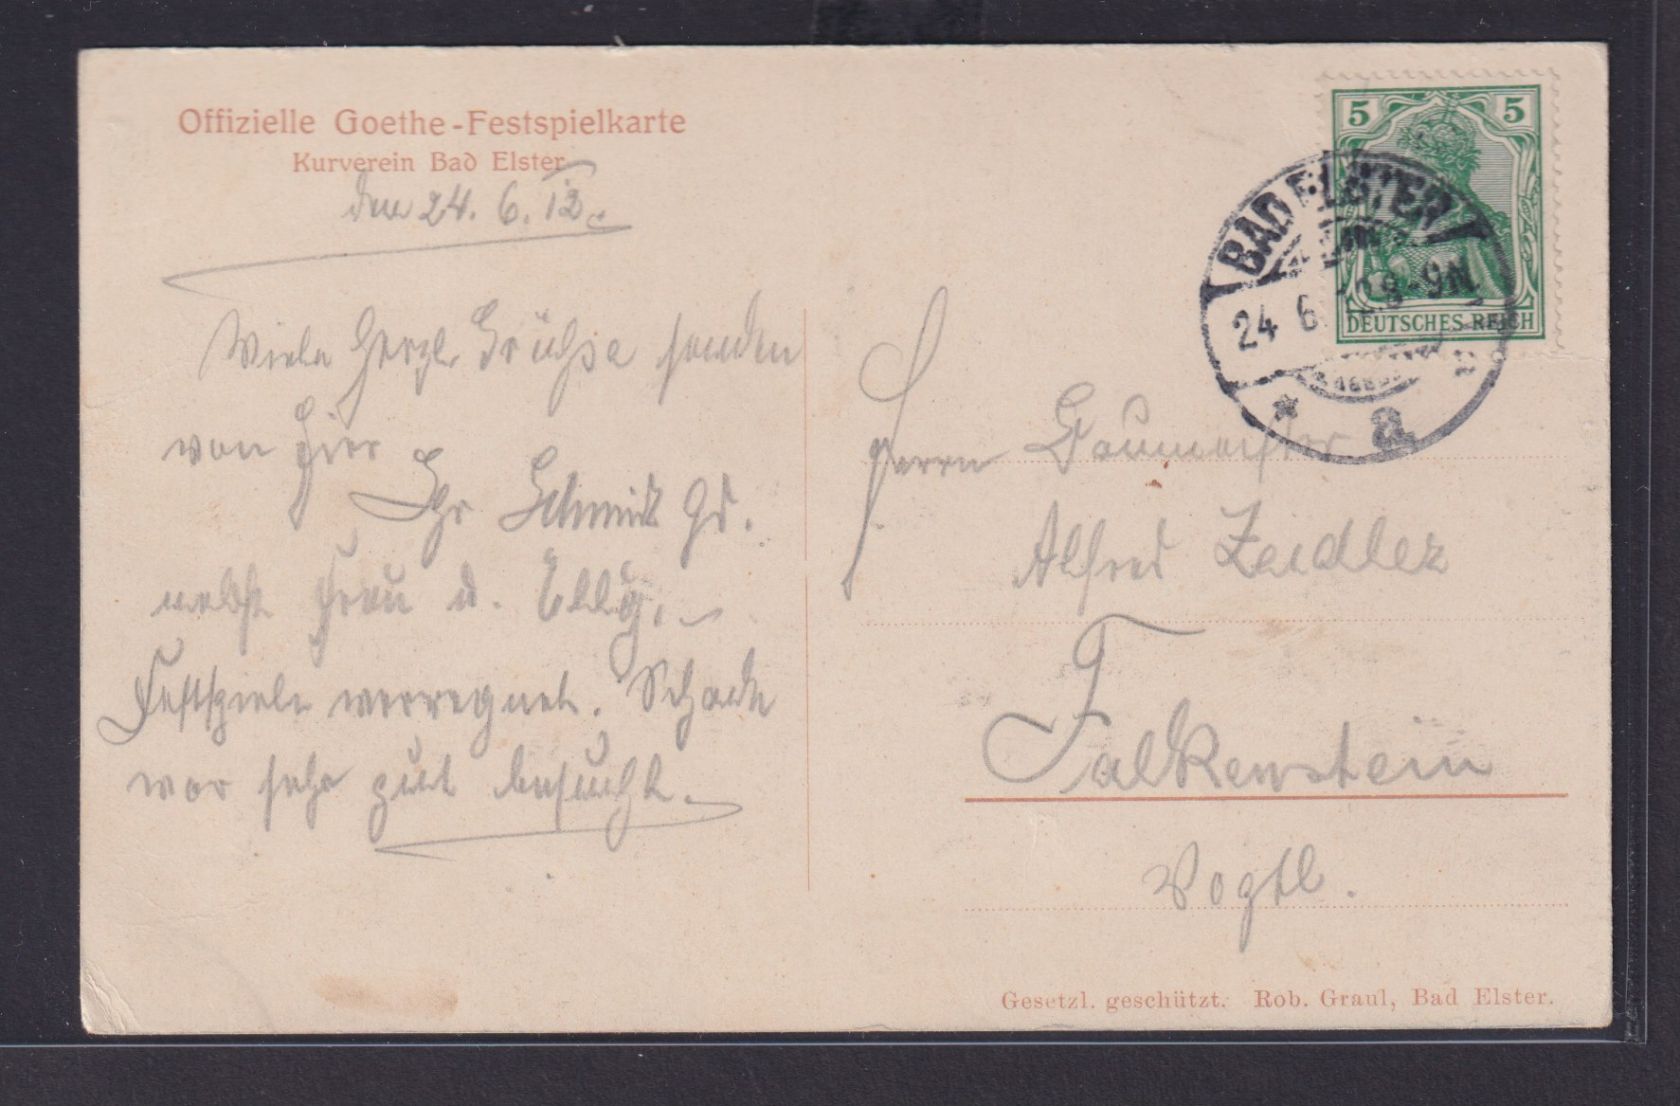 Offizielle Goethe-Festspielkarte
Kurverein Bad Elster
den 24. 6. 12.
Viele herzl. Grüße senden
von hier
Ihr Schmidt
nebst Frau u. Elly.
Festspiele verregnet. Schade
war sehr gut besucht.
5 5
DEUTSCHES REICH
BAD ELSTER
24 6 12 8-9N
* a
Herrn Baumeister
Alfred Zeidler
Falkenstein
Vogtl.
Gesetzl. geschützt. Rob. Graul, Bad Elster.